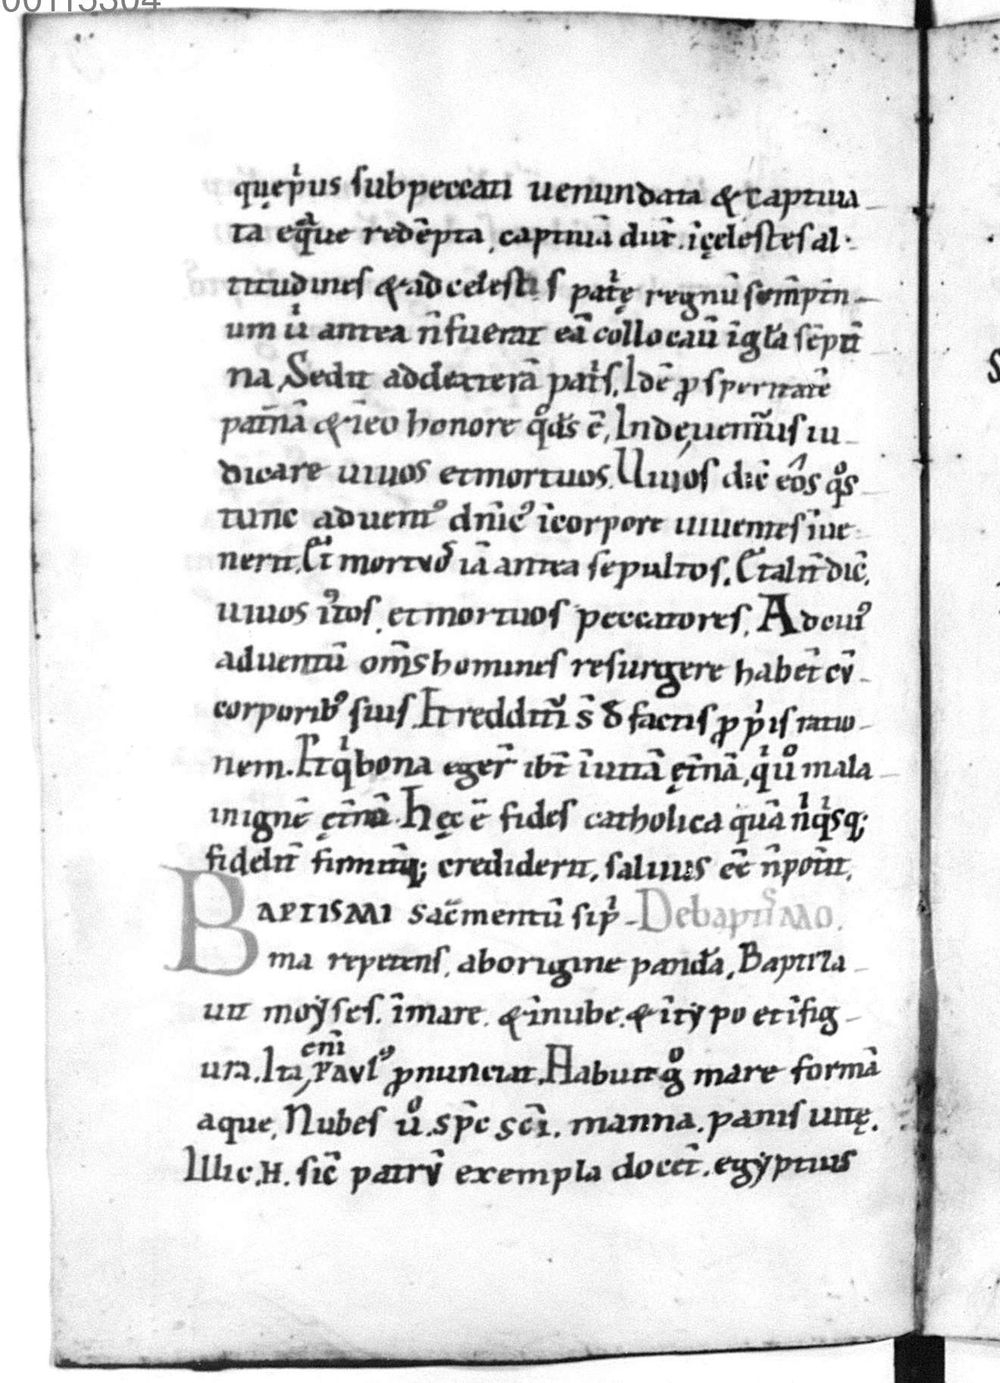 quęp͛us subpeccati uenundata & captiua
ta eq̃ue redēpta, captiuā dux̄. ic̨elestesal·
titudines & ad celestis patͥę regnū semp̄tn
um ů antea n̄ fuerat eā collocauˉ ī gl̄a sēpti
na, Sedit addexterā patͥs, Idē ꝓsperitatē
patn̄ā & ieo honore qͦd̄s ē, Indęuent͛us iu
dicare uiuos et mortuos. Uiuos dic̄ eos qͦs
tunc aduent᾽ dn̄ic᾽ icorpore uiuentes īue
nerit, Et mortuos iā antea sepultos. Et alit̄ dic̄,
uiuos iustos, et mortuos peccatores, Adcui᾽
aduentū om̄s homines resurgere habent̄ cū
corporib᾽ suis. Et reddit͛i s̄ d̄ factis ꝓpͥis ratio
nem. Et qͥ bona eger̄ ibt̄ ī uitā ęt̄nā, qͥ uͦ mala
in ignē ęt̄nū. Hęc ē fides catholica quā nͥqͥsq;
fidelit̄ firmit̄q; crediderit, saluus eē n̄ pot̄it,
BAPTISMI sac̄mentū si pͥ- De baptismo.
ma repetens, aborigine pandā, Baptiza
uit moẏses. īmare. & īnube. & ītẏpo et ifig
ura. Ita eni Paul᾽ ꝓnuntiat, Habuit gͦ mare formā
aque, Nubes uͦ. sp̄c sc̄i. manna. panis uitę.
Illic. H. sic̄ patrū exempla docet̄. egẏptius